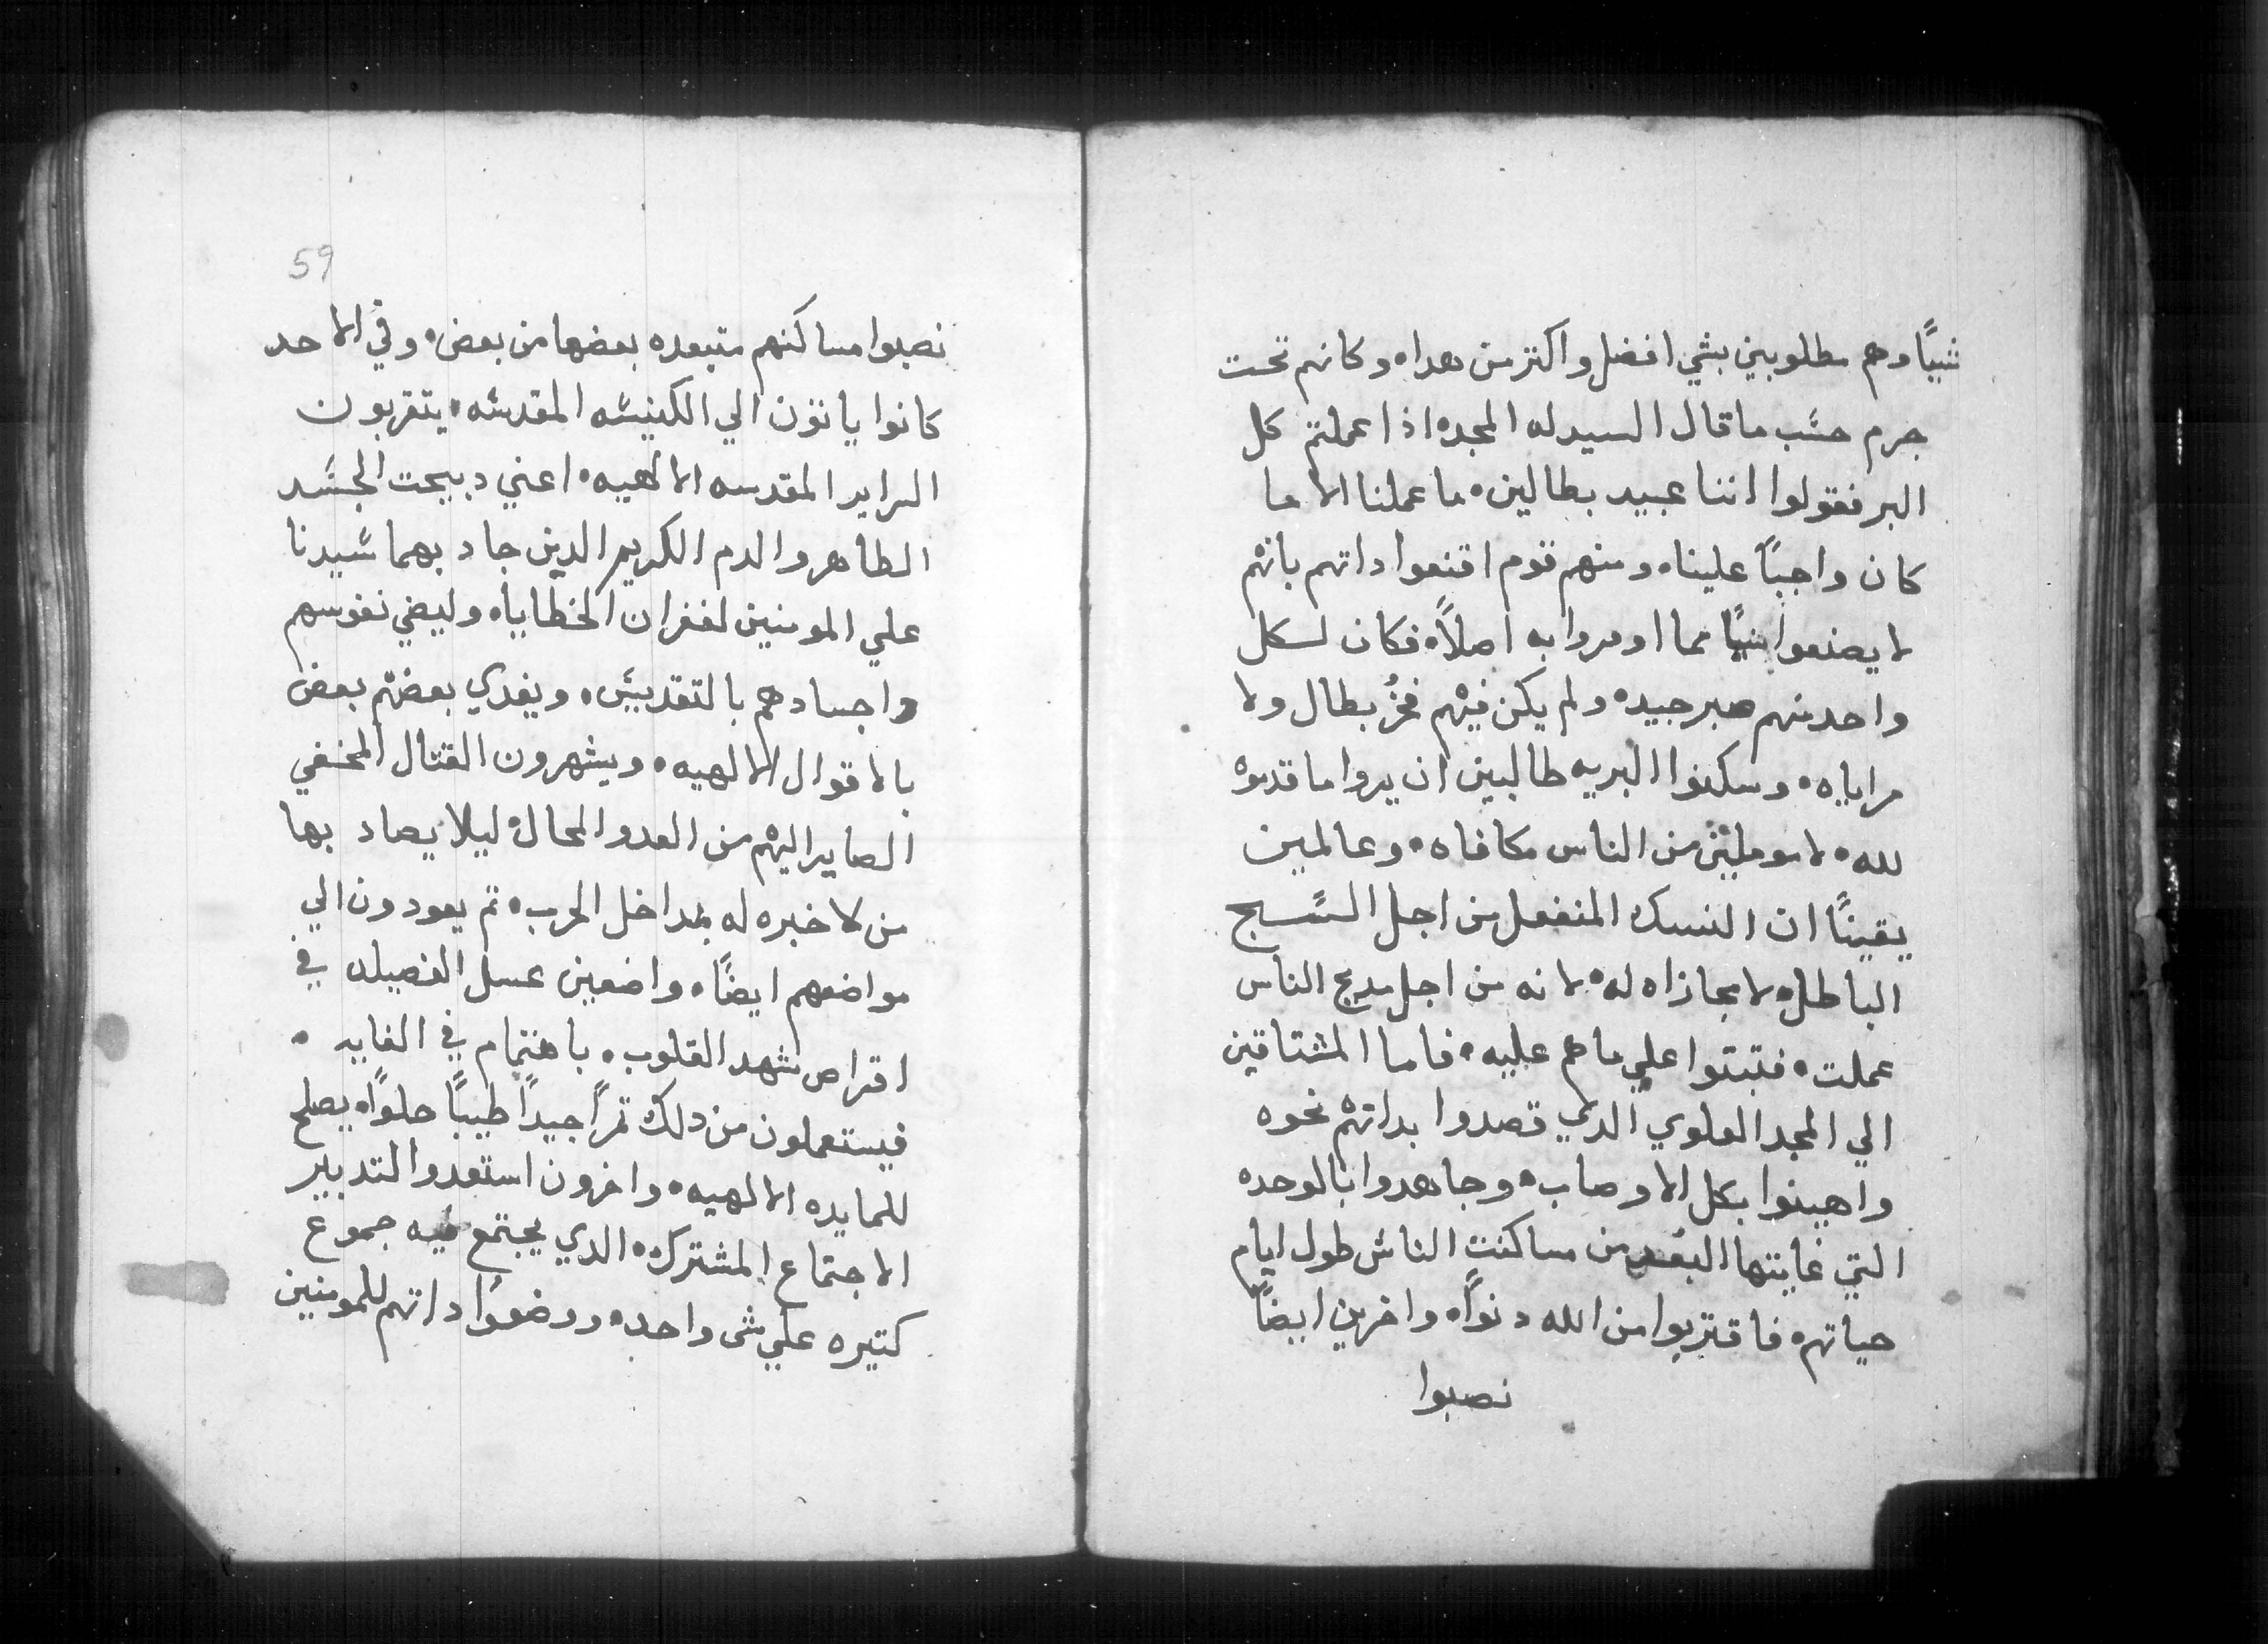 شيًا وهم مطلوبين بشي افضل واكتر من هدا، وكانهم تحت
جرم حسب ما قال السيد له المجد، اذا عملتم كل
البر فقولوا اننا عبيد بطالين، ما عملنا الا ما
كان واجبًا علينا، ومنهم قوم اقنعوا داتهم بانهم
لا يصنعوا شيًا مما اومروا به اصلاً، فكان لكل
واحد منهم صبر جيد، ولم يكن فيهم فخرُ بطال ولا
مراياه، وسكنوا البريه طالبين ان يروا ما قدموه
لله، لا موملين من الناس مكافاه، وعالمين
يقينًا ان النسك المنفعل من اجل السبح
الباطل، لا مجازاه له، لانه من اجل مديح الناس
عملت، فتبتوا علي ما هم عليه، فاما المشتاقين
الي المجد العلوي الدي قصدوا بداتهم نحوه
واهينوا بكل الاوصاب، وجاهدوا بالوحده
التي غايتها البُعد من مساكنت الناس طول ايام
حياتهم، فاقتربوا من الله دنوًا، واخرين ايضًا
نصبوا
59
نصبوا مساكنهم متبعده بعضها من بعض، وفي الاحد
كانوا ياتون الي الكنيسه المقدسه، يتقربون
السراير المقدسه الالهيه، اعني دبيحت الجسد
الطاهر والدم الكريم الدين جاد بهما سيدنا
علي المومنين لغفران الخطايا، وليضي نفوسهم
واجسادهم بالتقديس، ويغدي بعضهم بعض
بالاقوال الالهيه، ويشهرون القتال المخفي
الصاير اليهم من العدو المحال، ليلا يصاد بها
من لا خبره له بمداخل الحرب، تم يعودون الي
مواضعهم ايضًا، واضعين عسل الفضيله في
اقراص شهد القلوب، باهتمام في الغايه،
فيستعملون من دلك تمرًا جيدًا طيبًا حلوًا، يصلح
للمايده الالهيه، واخرون استعدوا لتدبير
الاجتماع المشترك، الدي يجتمع فيه جموع
كتيره علي شي واحد، ووضعوا داتهم للمومنين